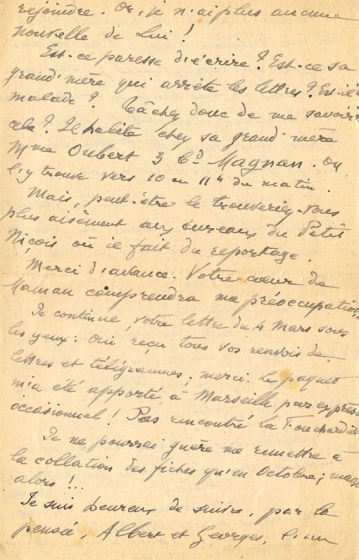 rejoindre. Or, je n'ai plus aucune
nouvelle de Lui !
Est-ce paresse d'écrire ? Est-ce sa
grand'mère qui arrête les lettres ? Est-il
malade ? Tâchez donc de me savoir
cela ? Il habite chez sa grand'mère
Mme Oubert 3 Bd Magnan. On
l'y trouve vers 10 ou 11h du matin.
Mais, peut-être le trouverez-vous
plus aisément aux bureaux du Petit
Niçois où il fait du reportage.
Merci d'avance. Votre cœur de
Maman comprendra ma préoccupation
Je continue, votre lettre du 4 Mars sous
les yeux : oui reçu tous vos renvois de
lettres et télégrammes, merci. Le paquet
m'a été apporté, à Marseille par exprès
occasionnel ! Pas rencontré la
Je ne pourrai guère me remettre à
la collation des fiches qu'en Octobre ; mais
alors !..
Je suis heureux de suivre, par la
pensée, Albert et Georges,